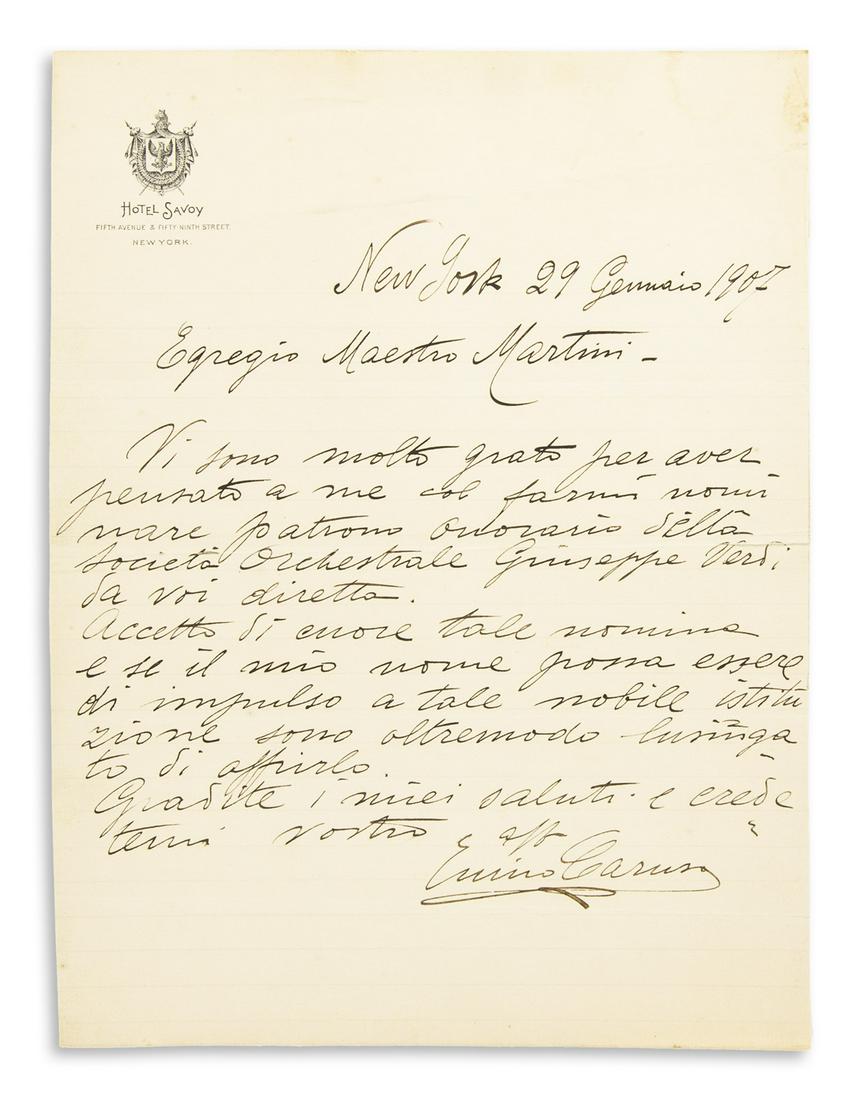 HOTEL SAVOY
FIFTH AVENUE & FIFTY-NINTH STREET.
NEW YORK.
New York 29 Gennaio 1907
Egregio Maestro Martini -
Vi sono molto grato per aver
pensato a me col farmi nomi
nare patrono onorario della
Società Orchestrale Giuseppe Verdi
da voi diretta.
Accetto di cuore tale nomina
e se il mio nome possa essere
di impulso a tale nobile istitu
zione sono oltremodo lusinga
to di offrirlo.
Gradite i miei saluti e crede
temi vostro aff
Enrico Caruso